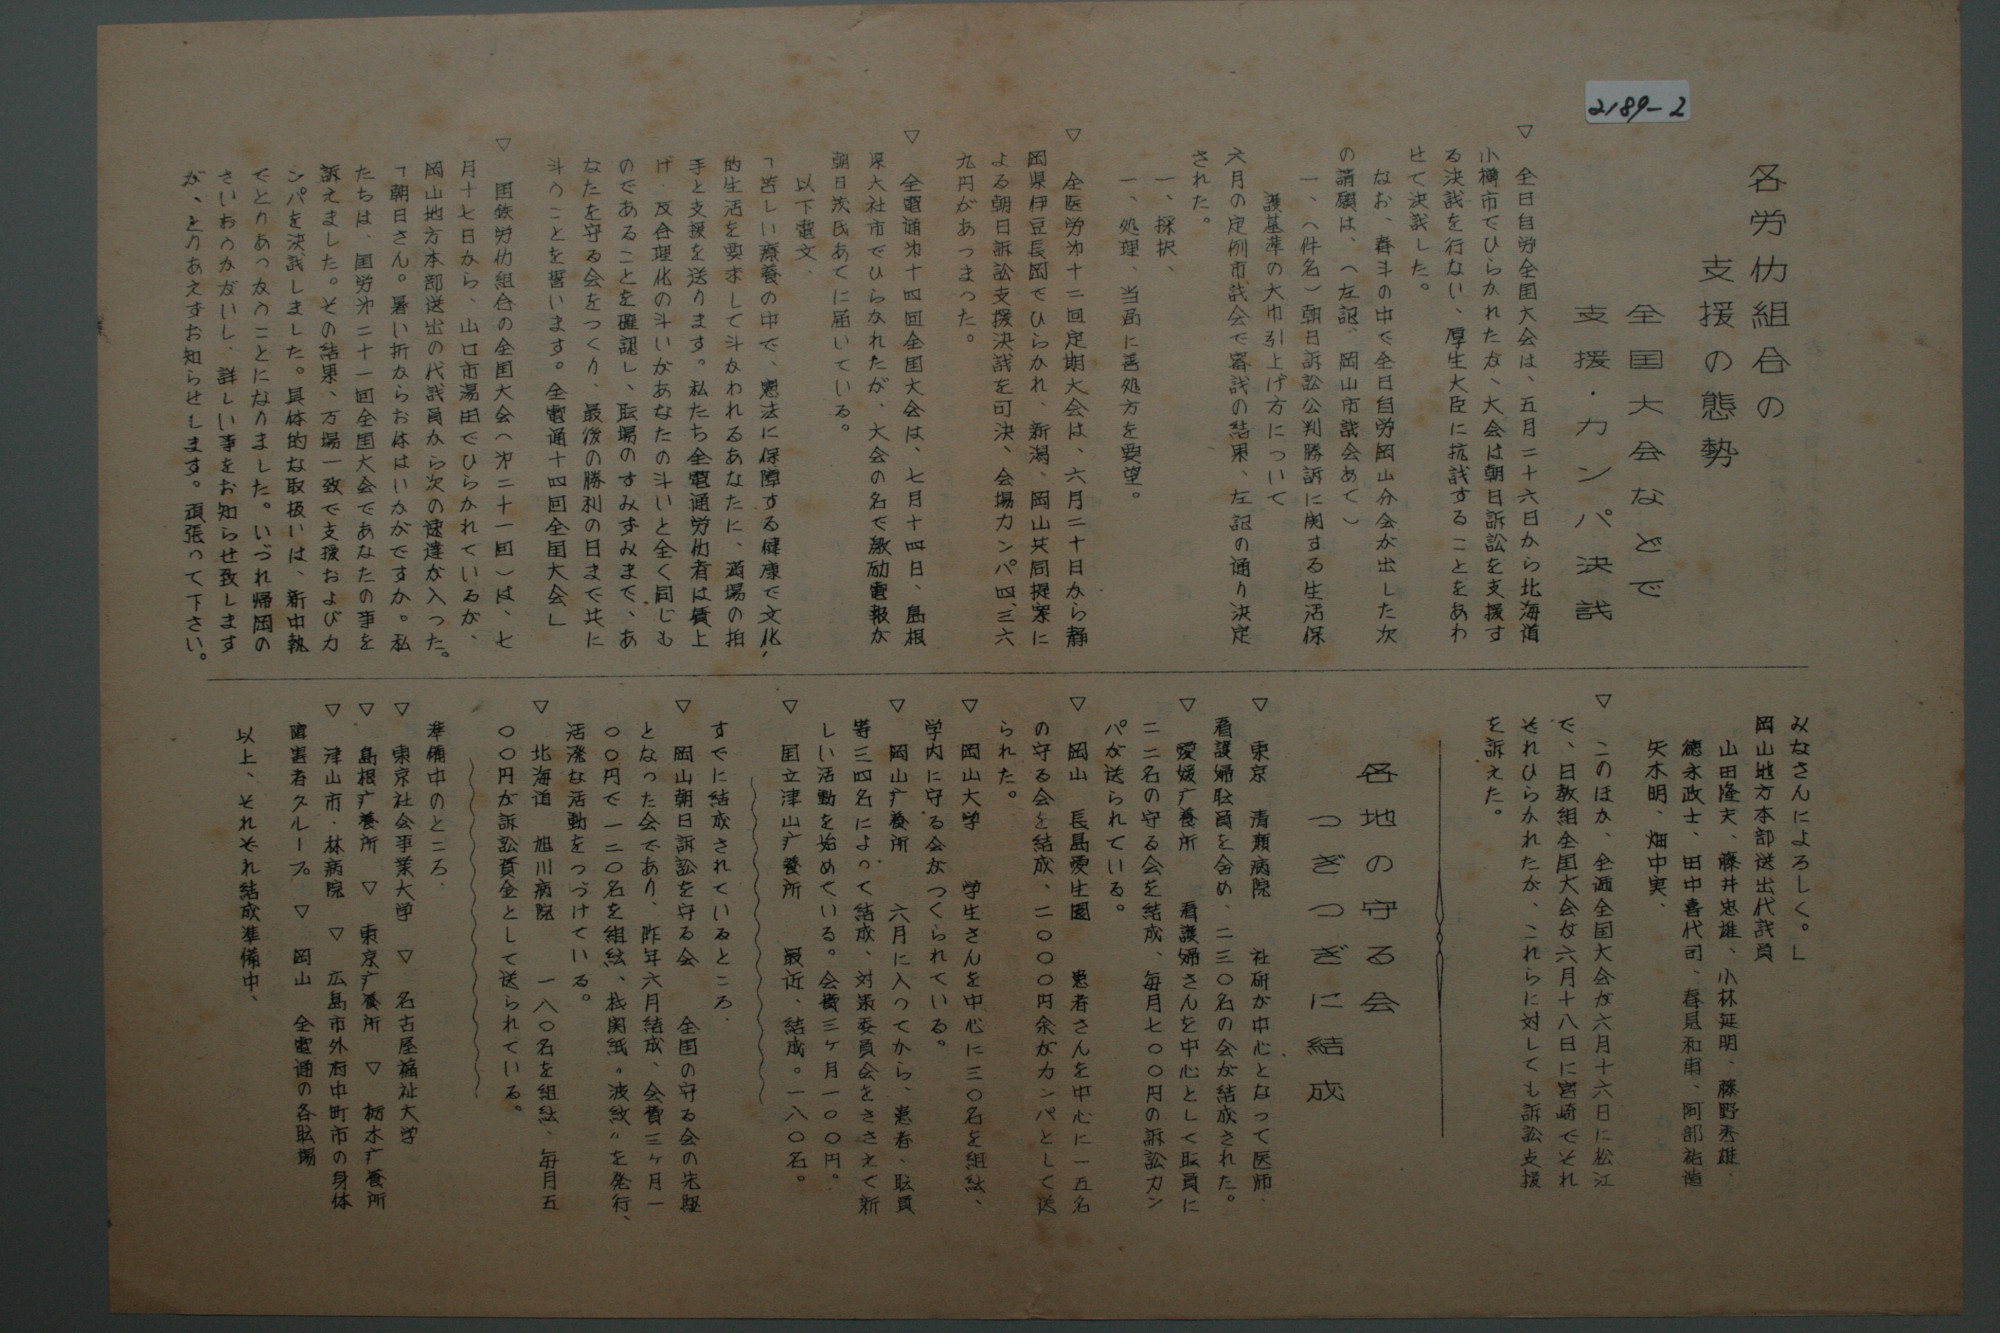 2189-2
各労仂組合の
支援の態勢
全国大会などで
支援・カンパ決議
▽　全日自労全国大会は、五月二十六日から北海道
小樽市でひらかれたが、大会は朝日訴訟を支援す
る決議を行ない、厚生大臣に抗議することをあわ
せて決議した。
なお、春斗の中で全日自労岡山分会が出した次
の請願は、（左記、岡山市議会あて）
一、（件名）朝日訴訟公判勝訴に関する生活保
護基準の大巾引上げ方について
六月の定例市議会で審議の結果、左記の通り決定
された。
一、採択、
一、処理、当局に善処方を要望。
▽　全医労第十二回定期大会は、六月二十日から静
岡県伊豆長岡でひらかれ、新潟、岡山共同提案に
よる朝日訴訟支援決議を可決、会場カンパ四、三六
九円があつまった。
▽　全電通第十四回全国大会は、七月十四日、島根
県大社市でひらかれたが、大会の名で激励電報が
朝日茂氏あてに届いている。
以下電文、
「苦しい療養の中で、憲法に保障する健康で文化
的生活を要求して斗かわれるあなたに、満場の拍
手と支援を送ります。私たち全電通労仂者は賃上
げ・反合理化の斗いがあなたの斗いと全く同じも
のであることを確認し、職場のすみずみまで、あ
なたを守る会をつくり、最後の勝利の日まで共に
斗うことを誓います。全電通十四回全国大会」
▽　国鉄労仂組合の全国大会（第二十一回）は、七
月十七日から、山口市湯田でひらかれているが、
岡山地方本部送出の代議員から次の速達が入った。
「朝日さん。暑い折からお体はいかがですか。私
たちは、国労第二十一回全国大会であなたの事を
訴えました。その結果、万場一致で支援およびカ
ンパを決議しました。具体的な取扱いは、新中執
でとりあつかうことになりました。いづれ帰岡の
さいおうかがいし、詳しい事をお知らせ致します
が、とりあえずお知らせします。頑張って下さい。
みなさんによろしく。」
岡山地方本部送出代議員
山田隆夫、藤井忠雄、小林延明、藤野秀雄、
徳永政士、田中喜代司、春見和甫、阿部祐造
矢木明、畑中実、
▽　このほか、全逓全国大会が六月十六日に松江
で、日教組全国大会が六月十八日に宮崎でそれ
それひらかれたが、これらに対しても訴訟支援
を訴えた。
各地の守る会
つぎつぎに結成
▽　東京　清瀬病院　社研が中心となって医師、
看護婦職員を含め、二三〇名の会が結成された。
▽　愛媛疒養所　看護婦さんを中心として職員に
二二名の守る会を結成、毎月七〇〇円の訴訟カン
パが送られている。
▽　岡山　長島愛生園　患者さんを中心に一五名
の守る会を結成、二〇〇〇円余がカンパとして送
られた。
▽　岡山大学　学生さんを中心に三〇名を組絃、
学内に守る会がつくられている。
▽　岡山疒養所　六月に入ってから、患者、職員
等三四名によって結成、対策委員会をささえて新
しい活動を始めている。会費三ヶ月一〇〇円。
▽　国立津山疒養所　最近、結成。一八〇名。
すでに結成されているところ、
▽　岡山朝日訴訟を守る会　全国の守る会の先駆
となった会であり、昨年六月結成、会費三ヶ月一
〇〇円で一二〇名を組絃、機関紙〝波紋〟を発行、
活溌な活動をつづけている。
▽　北海道　旭川病院　一八〇名を組絃、毎月五
〇〇円が訴訟資金として送られている。
準備中のところ、
▽　東京社会事業大学　▽　名古屋福祉大学
▽　島根疒養所　▽　東京疒養所　▽　栃木疒養所
▽　津山市・林病院　▽　広島市外府中町市の身体
障害者グループ　▽　岡山　全電通の各職場
以上、それそれ結成準備中、